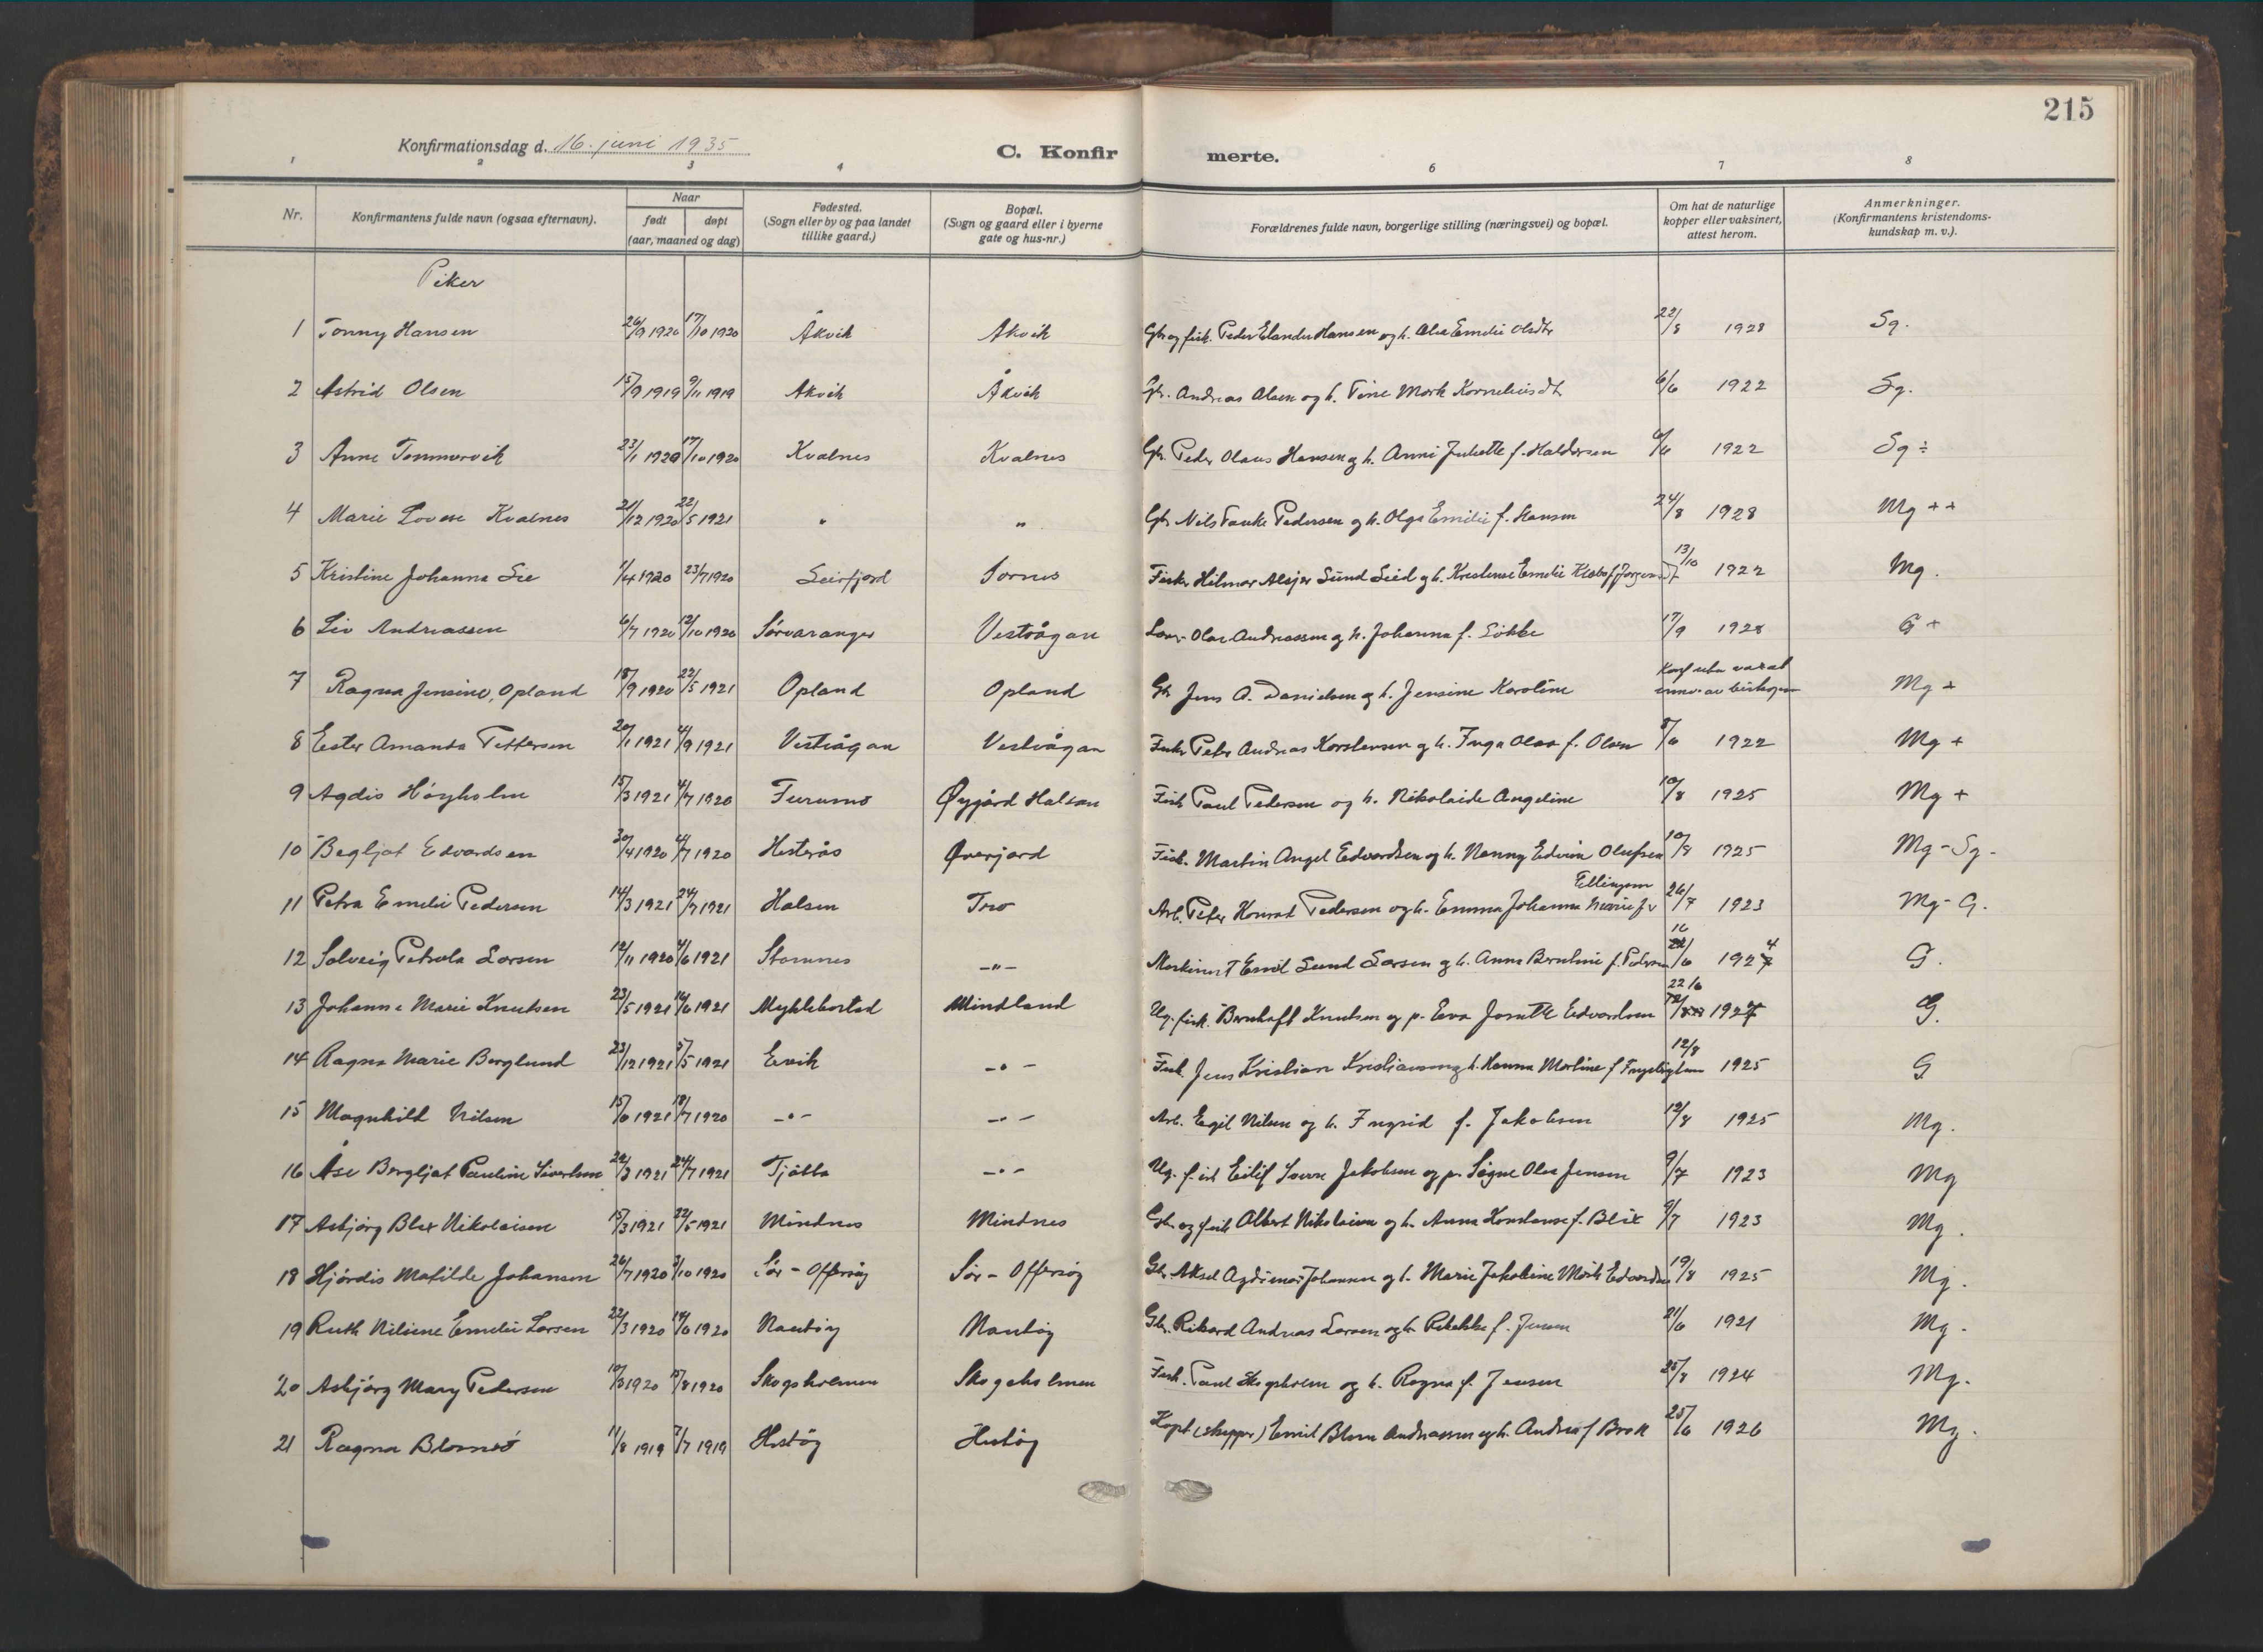 215
Konfirmationsdag d. 16. juni 1935
C. Konfirmerte.
1 2 3 4 6 7 8
Nr. Konfirmantens fulde navn (ogsaa efternavn). Naar født døpt (aar, maaned og dag) Fødested. (Sogn eller by og paa landet tillike gaard.) Bopæl. (Sogn og gaard eller i byerne gate og hus-nr.) Forældrenes fulde navn, borgerlige stilling (næringsvei) og bopæl. Om hat de naturlige kopper eller vaksinert, attest herom. Anmerkninger. (Konfirmantens kristendoms-kundskap m. v.).
Piker
1 Tonny Hansen 26/9 1920 17/10 1920 Åkvik Åkvik Gbr og fisk. Peder Elander Hansen og h. Emelie Olsdtr 22/8 1928 Sg.
2 Astrid Olsen 15/9 1919 9/11 1919 Åkvik Åkvik Gbr. Andreas Olsen og h. Tine Mork Korneliusdt 6/6 1922 Sg.
3 Anne Tommervik 23/1 1920 17/10 1920 Kvalnes Kvalnes Gbr. Peder Olaus Hansen og h. Anni Juliette f. Haldorsen 6/6 1922 Sg ÷
4 Marie Lovise Kvalnes 21/12 1920 22/5 1921 " " Gbr Nils Tanke Pedersen og h. Olga Emilie f. Hansen 24/8 1928 Mg ++
5 Kristine Johanna Sie 1/4 1920 23/7 1920 Leirfjord Sornes Fisker Hilmar Sund Seid og h. Kristense Emelie 13/10 1922 Mg.
6 Liv Andreassen 6/7 1920 12/10 1920 Sørvaranger Vestvågan Olav Andreassen og h. Johanna f. Løkke 17/9 1928 G +
7 Ragna Jensine, Opland 18/9 1920 22/5 1921 Opland Opland Gb Jens A. Danielsen og h. Jensine Karoline Konf. uten av biskopen Mg +
8 Ester Amanda Pettersen 20/1 1921 4/9 1921 Vestvågan Vestvågan Fisker Peter Andreas Karstensen og h. Inga Olava f. Olsen 8/6 1922 Mg +
9 Agdis Høyholm 15/3 1921 4/7 1920 Furumo Øygård Halsan Fisk Paul Pedersen og h. Nikolaide Angeline 10/8 1925 Mg +
10 Begljot Edvardsen 30/4 1920 4/7 1920 Hesterås Øverjord Fisk. Martin Angel Edvardsen og h. Nanny Edvine Olufsen 10/8 1925 Mg - Sg -
11 Petra Emelie Pedersen 14/3 1921 24/7 1921 Halsen Tro Arb. Peter Konrad Pedersen og h. Emma Johanna Marie f. Ellingsen 26/7 1923 Mg - G.
12 Solveig Petrola Larsen 12/11 1920 4/6 1921 Stamnes -"- Maskinist Emil Sund Larsen og h. Anna Berntine f. Pedersen 16/6 1924 G.
13 Johanne Marie Knutsen 23/5 1921 14/6 1921 Myklebostad Mindland Ug. fisk. Bernhoft Knutsen og p. Eva Josette Edvardsen 22/6 1927 G.
14 Ragna Marie Berglund 23/12 1921 5/5 1921 Ervik -"- Fisk. Jens Kristian Kristiansen og h. Hanna Martine f. 12/8 1925 G
15 Magnhild Nilsen 15/6 1921 18/7 1920 -"- -"- Arb. Egil Nilsen og h. Ingrid f. Jakobsen 12/8 1925 Mg.
16 Åse Bergljot Pauline Sivertsen 22/3 1921 24/7 1921 Tjøtta -"- Ug. fisk Eilif Sverre Jakobsen og p. Signe Olea Jensen 9/7 1923 Mg
17 Asbjørg Blix Nikolaisen 15/3 1921 22/5 1921 Mindnes Mindnes Gbr. og fisk Albert Nikolaisen og h. Anna Konstanse f. Blix 9/7 1923 Mg.
18 Hjørdis Matilde Johansen 26/7 1920 3/10 1920 Sør - Offersøy Sør - Offersøy Gbr. Aksel Agdimar Johansen og h. Marie Jakobine Edvardsen 19/8 1925 Mg.
19 Ruth Nilsine Emelie Larsen 22/3 1920 19/6 1920 Nautøy Nautøy Gbr. Rikard Andreas Larsen og h. Rebekke f. Jensen 21/6 1921 Mg.
20 Asbjørg Mary Pedersen 10/3 1920 15/8 1920 Skogsholmen Skogsholmen Fisk. Paul Skogsholm og h. Ragna f. Jensen 25/8 1924 Mg.
21 Ragna Blomsø 11/8 1919 7/7 1919 Hestøy Hestøy Kapt (skipper) Emil Blom Andreassen og h. Andrea f Brok 25/6 1926 Mg.